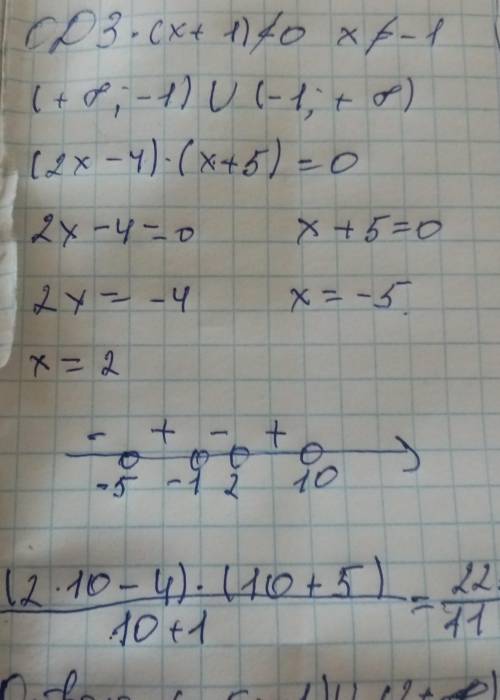 ОДЗ · (x + 1) ≠ 0 x ≠ -1
(+ ∞; -1) ∪ (-1; + ∞)
(2x - 4) · (x + 5) = 0
2x - 4 = 0 x + 5 = 0
2x = -4 x = -5.
x = 2
- + - +
-5 -1 2 10
(2 · 10 - 4) · (10 + 5) = 22
10 + 1 11